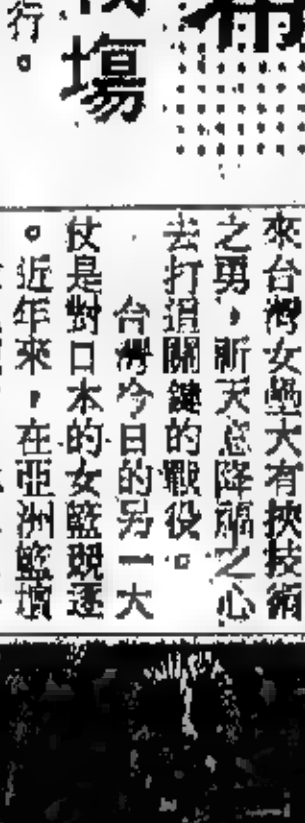 行。
塲
來台灣女壘大有挾技術
之勇，祈天意降福之心
去打這關鍵的戰役。
台灣今日的另一大
仗是對日本的女籃競逐
。近年來，在亞洲籃壇